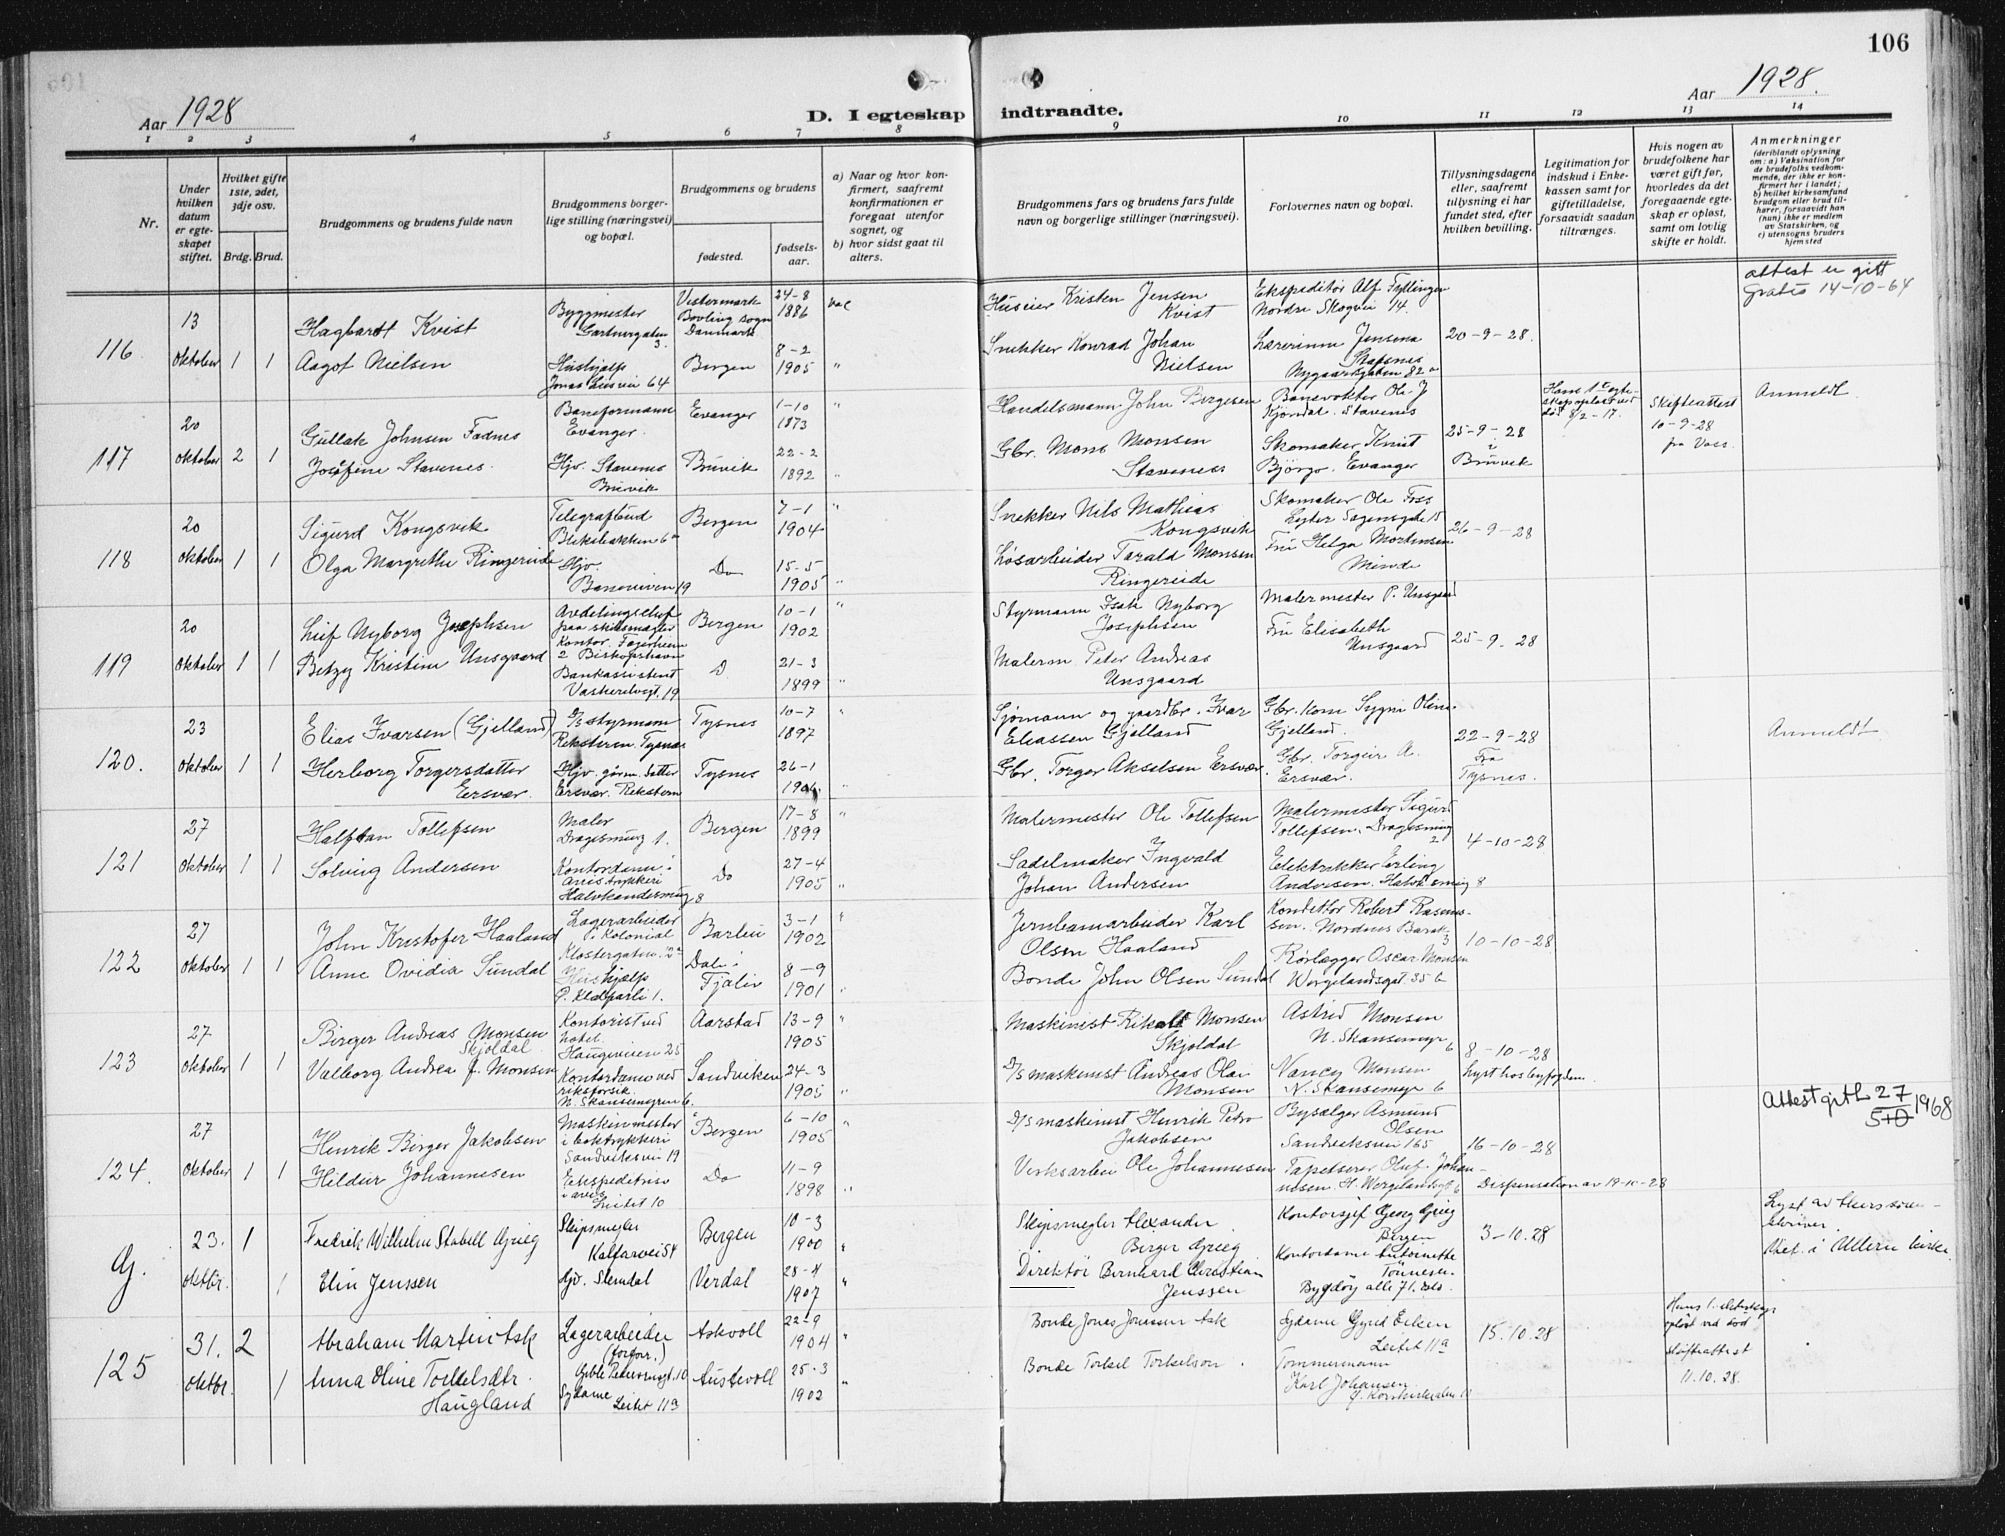 106
Aar 1928
D. I egteskap indtraadte.
Aar 1928.
1 2 3 4 5 6 7 8 9 10 11 12 13 14
Nr.
Under hvilken datum er egteskapet stiftet.
Hvilket gifte 1ste, 2det, 3dje osv.
Brdg. Brud.
Brudgommens og brudens fulde navn
Brudgommens borgerlige stilling (næringsvei) og bopæl.
Brudgommens og brudens
fødested.
fødselsaar.
a) Naar og hvor konfirmert, saafremt konfirmationen er foregaat utenfor sognet, og
b) hvor sidst gaat til alters.
Brudgommens fars og brudens fars fulde navn og borgerlige stillinger (næringsvei).
Forlovernes navn og bopæl.
Tillysningsdagene eller, saafremt tillysning ei har fundet sted, efter hvilken bevilling.
Legitimation for indskud i Enkekassen samt for giftetilladelse, forsaavidt saadun tiltrænges.
Hvis nogen av brudefolkene har været gift før, hvorledes da det foregaaende egteskap er opløst, samt om lovlig skifte er holdt.
Anmerkninger
(deriblandt oplysning om: a) Vaksination for de brudefolks vedkommende, der ikke er konfirmert her i landet; b) hvilket kirkesamfund brudgom eller brud tilhører, forsaavidt han (hun) ikke er medlem av Statskirken, og c) utensogns bruders hjemsted
116.
13 oktober 1 1
Hagbardt Kvist
Aagot Nielsen
Byggmester
Gartnergaten 3.
Hushjælp
Jonas Liesvei 64
Vestermark
Bovling sogn
Danmark
Bergen
24-8
1886
8-2
1905
vac
Huseier Kristen Jensen
Kvist
Snekker Konrad Johan
Nielsen
Ekspeditør Alf Fyllingen
Nordre Skogvei 14.
Lærerinne Jensena
Stafsnes
Nygaardsgaten 82 a
20-9-28.
attest er gitt
gratis 14-10-64
117
20 oktober 2 1
Gullak Johnsen Fadnes
Josefine Stavenes.
Baneformann
Evanger.
Hjv. Stavenes
Bruvik
Evanger
Bruvik
1-10
1873
22-2
1892
Handelsmann John Bergesen
Gbr. Mons Monsen
Stavenes
Banevokter Ole J
Kjøndal. Stavenes
Skomaker Knut
Bjørgo. Evanger
25-9-28
i
Bruvik
Skifteattest
10-9-28
fra Voss.
Anmeldt
118
20 oktober 1 1
Sigurd Kongsvik
Olga Margrethe Ringereide
Telegrafbud
Blekebakken 6a
Hjv.
Baneveien 19
Bergen
Do
7-1
1904
15-5
1905
Snekker Nils Mathias
Kongsvik
Løsarbeider Tarald Monsen
Ringereide
Skomaker Ole Foss
Fru Helga Mortensen
Minde
26-9-28
119
20 oktober 1 1
Leif Nyborg Josephsen
Betzy Kristine Unsgaard
Avdelingschef
paa skibsmægler
Kontor. Fagerheim
2 Biskopshavn
Bankassistent
Vaskerelvgt. 19
Bergen
D
10-1
1902
21-3
1899
Styrmann Isak Nyborg
Josephsen
Malerm. Peter Andreas
Unsgaard
Malermester P. Unsgaard
Fru Elisabeth
Unsgaard
25-9-28
120.
23 oktober 1 1
Elias Ivarsen (Gjelland)
Herborg Torgersdatter
Eersvær.
D/S styrmann
Reksteren. Tysnes
Hjv. gårm. datter
Ersvær. Reksteren
Tysnes
Tysnes
10-7
1897
26-1
Sjømann og gaardbr. Ivar
Eliassen Gjelland
Gbr. Torger Akselsen Ersvær.
Gjelland.
Gbr. Torgeir A.
Ersvær.
22-9-28
Fra
Tysnes.
Anmeldt
121
27 oktober 1 1
Halfdan Tollefsen
Solveig Andersen
Maler
Dragesmug 1.
Kontordame i
Avistrykkeri
Halvkandesmug 8
Bergen
Do
17-8
1899
27-4
1905
Malermester Ole Tollefsen
Sadelmaker Ingvald
Johan Andersen
Malermester Sigurd
Tollefsen. Dragesmug
2
Elektrikker Erling
Andersen. Halvk.smug 8
4-10-28
122
27 oktober 1 1
John Kristofer Haaland
Anne Ovidia Sundal
Lagerarbeider
i kolonial
Klostergaten
Hushjælp
Dale i
Fjaler
3-1
1902
8-9
1901
Jernbanearbeider Karl
Olsen Haaland
Bonde John Olsen Sundal
Konduktør Robert Rasmussen. Nordnes Barak
3
Rørlægger Oscar Monsen
Wergelandsgt 35 b
10-10-28
123
27 oktober 1 1
Birger Andreas Monsen
Skjoldal
Valborg Andrea J. Monsen
Kontorist ved
hotel.
Haugeveien 25
Kontordame ved
riksforsik.
N. Skansemyren 6.
Aarstad
Sandviken
13-9
1905
24-3
1905
Maskinist Rikolt Monsen
Skjoldal
D/S maskinist Andreas Olai
Monsen
Astrid Monsen
N. Skansemyr 6
Nancy Monsen
N. Skansemyr 6
8-10-28
Lyst hos byfogden.
124.
27 oktober 1 1
Henrik Birger Jakobsen
Hildur Johannesen
Maskinmester
i boktrykkeri
Sandviksvei 19
Ekspeditrise
i avis
Leitet 10
Bergen
Do
6-10
1905
11-9
1898
D/S maskinist Henrik Petro
Jakobsen
Verksarbei Ole Johannesen
Bysælger Asmund
Olsen
Sandviksvei 165
Tapetserer Oluf Johannesen. H. Wergelandsgt 6
16-10-28
Dispensation av 19-10-28
Attest gitt 27/5 1968
G.
23. oktbr. 1 1
Fredrik Wilhelm Stabell Grieg
Elin Jenssen
Skipsmegler
Kalfarvei 54
Hjv. Stemdal
Bergen
Verdal
10-3
1900
28-4
1907
Skipsmegler Alexander
Birger Grieg
Direktør Bernhard Christian
Jenssen
Kontorsjef Georg Grieg
Bergen
Kontordame Antoinette
Tönnesen
Bygdøy alle 71. Oslo.
3-10.28
Viet i Ullern kirke
125
31. oktbr. 2 1
Abraham Martin Ask
Anna Oline Torkelsdtr.
Haugland
Lagerarbeider
(forfvr.)
Gyble Pedersensgt. 10
Sydame
Leitet 11a
Askvoll
Austevoll
22-9
1904
25-3
1902
Bonde Jonas Jonssen Ask
Bonde Torkel Torkelson.
Sydame Gyrid Eiken
Leitet 11a
Tømmermann
Karl Johansen
15.10.28
Hans 1. ekteskap
opløst ved død
Skifteattest
11.10.28.